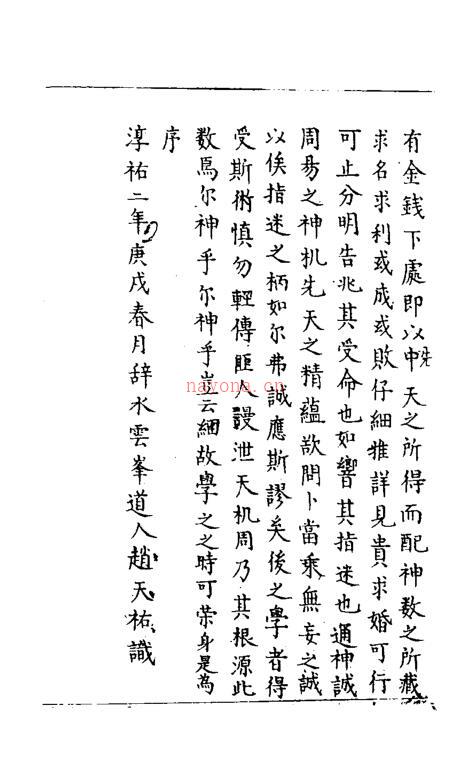 有金錢下處即以中先天之所得而配神数之所藏
求名求利或成或敗仔細推詳見貴求婚可行
可止分明告兆其受命也如響其指迷也通神誠
周易之神机先天之精蘊欲問卜當乘無妄之誠
以俟指迷之柄如尔弗誠應斯謬矣後之學者得
受斯術慎勿輕傳匪人謾泄天机周乃其根源此
数焉尔神乎尔神乎豈云細故學之之時可荣身是為
序
淳祐二年庚戌春月辞水雲峯道人趙天祐識
nayona.cn